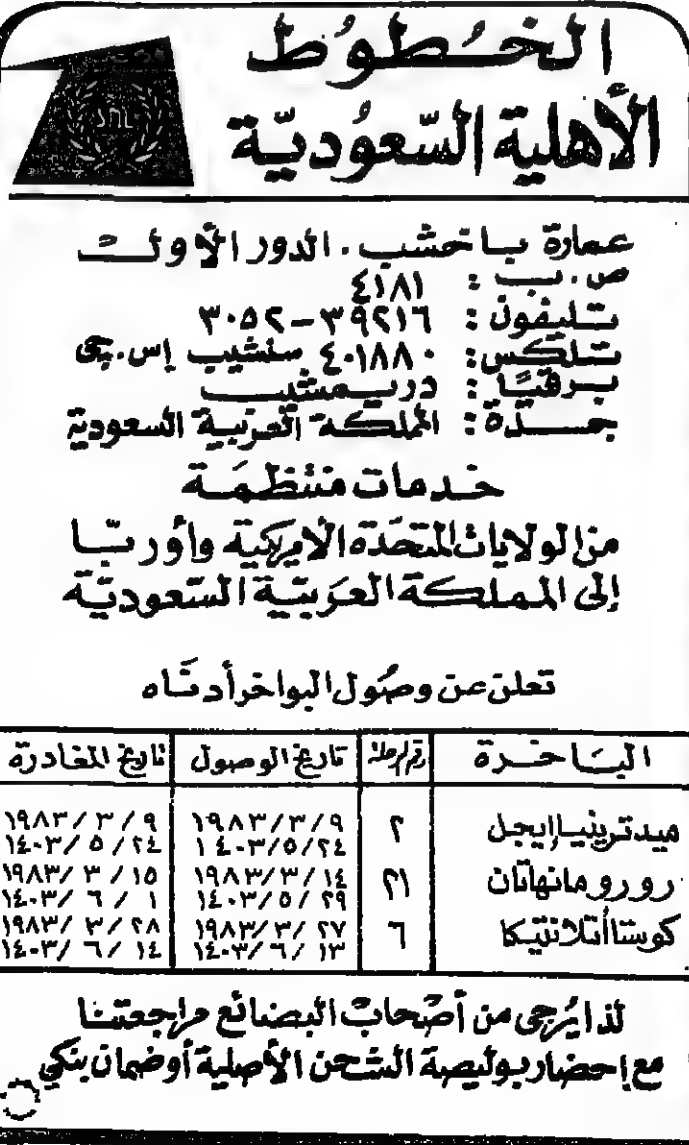 الخطوط
الأهلية السعودية
SNL
عمارة باخشب . الدور الأول
ص . ب : ٤١٨١
تليفون : ٣٩٢١٦ - ٣٠٥٢
تلكس : ٤٠١٨٨٠ سنشيب إس . جي
برقيًا : دريمشيب
جدة : المملكة العربية السعودية
خدمات منتظمة
من الولايات المتحدة الأمريكية وأوربا
إلى المملكة العربية السعودية
تعلن عن وصول البواخر أدناه
الباخرة رقم الرحلة تاريخ الوصول تاريخ المغادرة
ميدترينيا إيجل ٢ ١٩٨٣/٣/٩ ١٩٨٣/٣/٩
١٤٠٣/٥/٢٤ ١٤٠٣/٥/٢٤
رورو مانهاتان ٢١ ١٩٨٣/٣/١٤ ١٩٨٣/٣/١٥
١٤٠٣/٥/٢٩ ١٤٠٣/٦/١
كوستا أتلانتيكا ٦ ١٩٨٣/٣/٢٧ ١٩٨٣/٣/٢٨
١٤٠٣/٦/١٣ ١٤٠٣/٦/١٤
لذا يُرجى من أصحاب البضائع مراجعتنا
مع إحضار بوليصة الشحن الأصلية أو ضمان بنكي